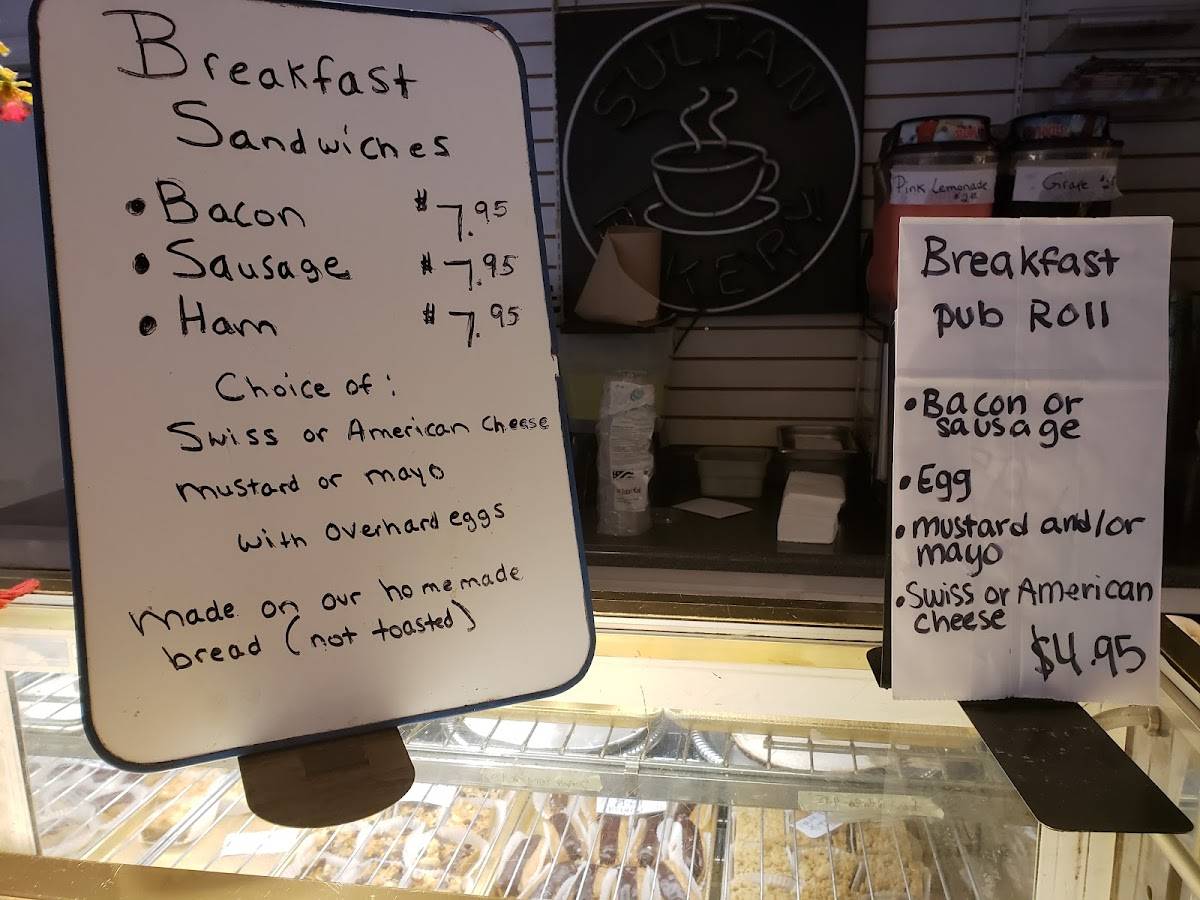 Breakfast
Sandwiches
• Bacon $7.95
• Sausage $7.95
• Ham $7.95
Choice of:
Swiss or American Cheese
mustard or mayo
with overhard eggs
made on our homemade
bread (not toasted)
SULTAN
Pink Lemonade
Grape
Breakfast
pub Roll
• Bacon or
sausage
• Egg
• mustard and/or
mayo
• Swiss or American
cheese
$4.95